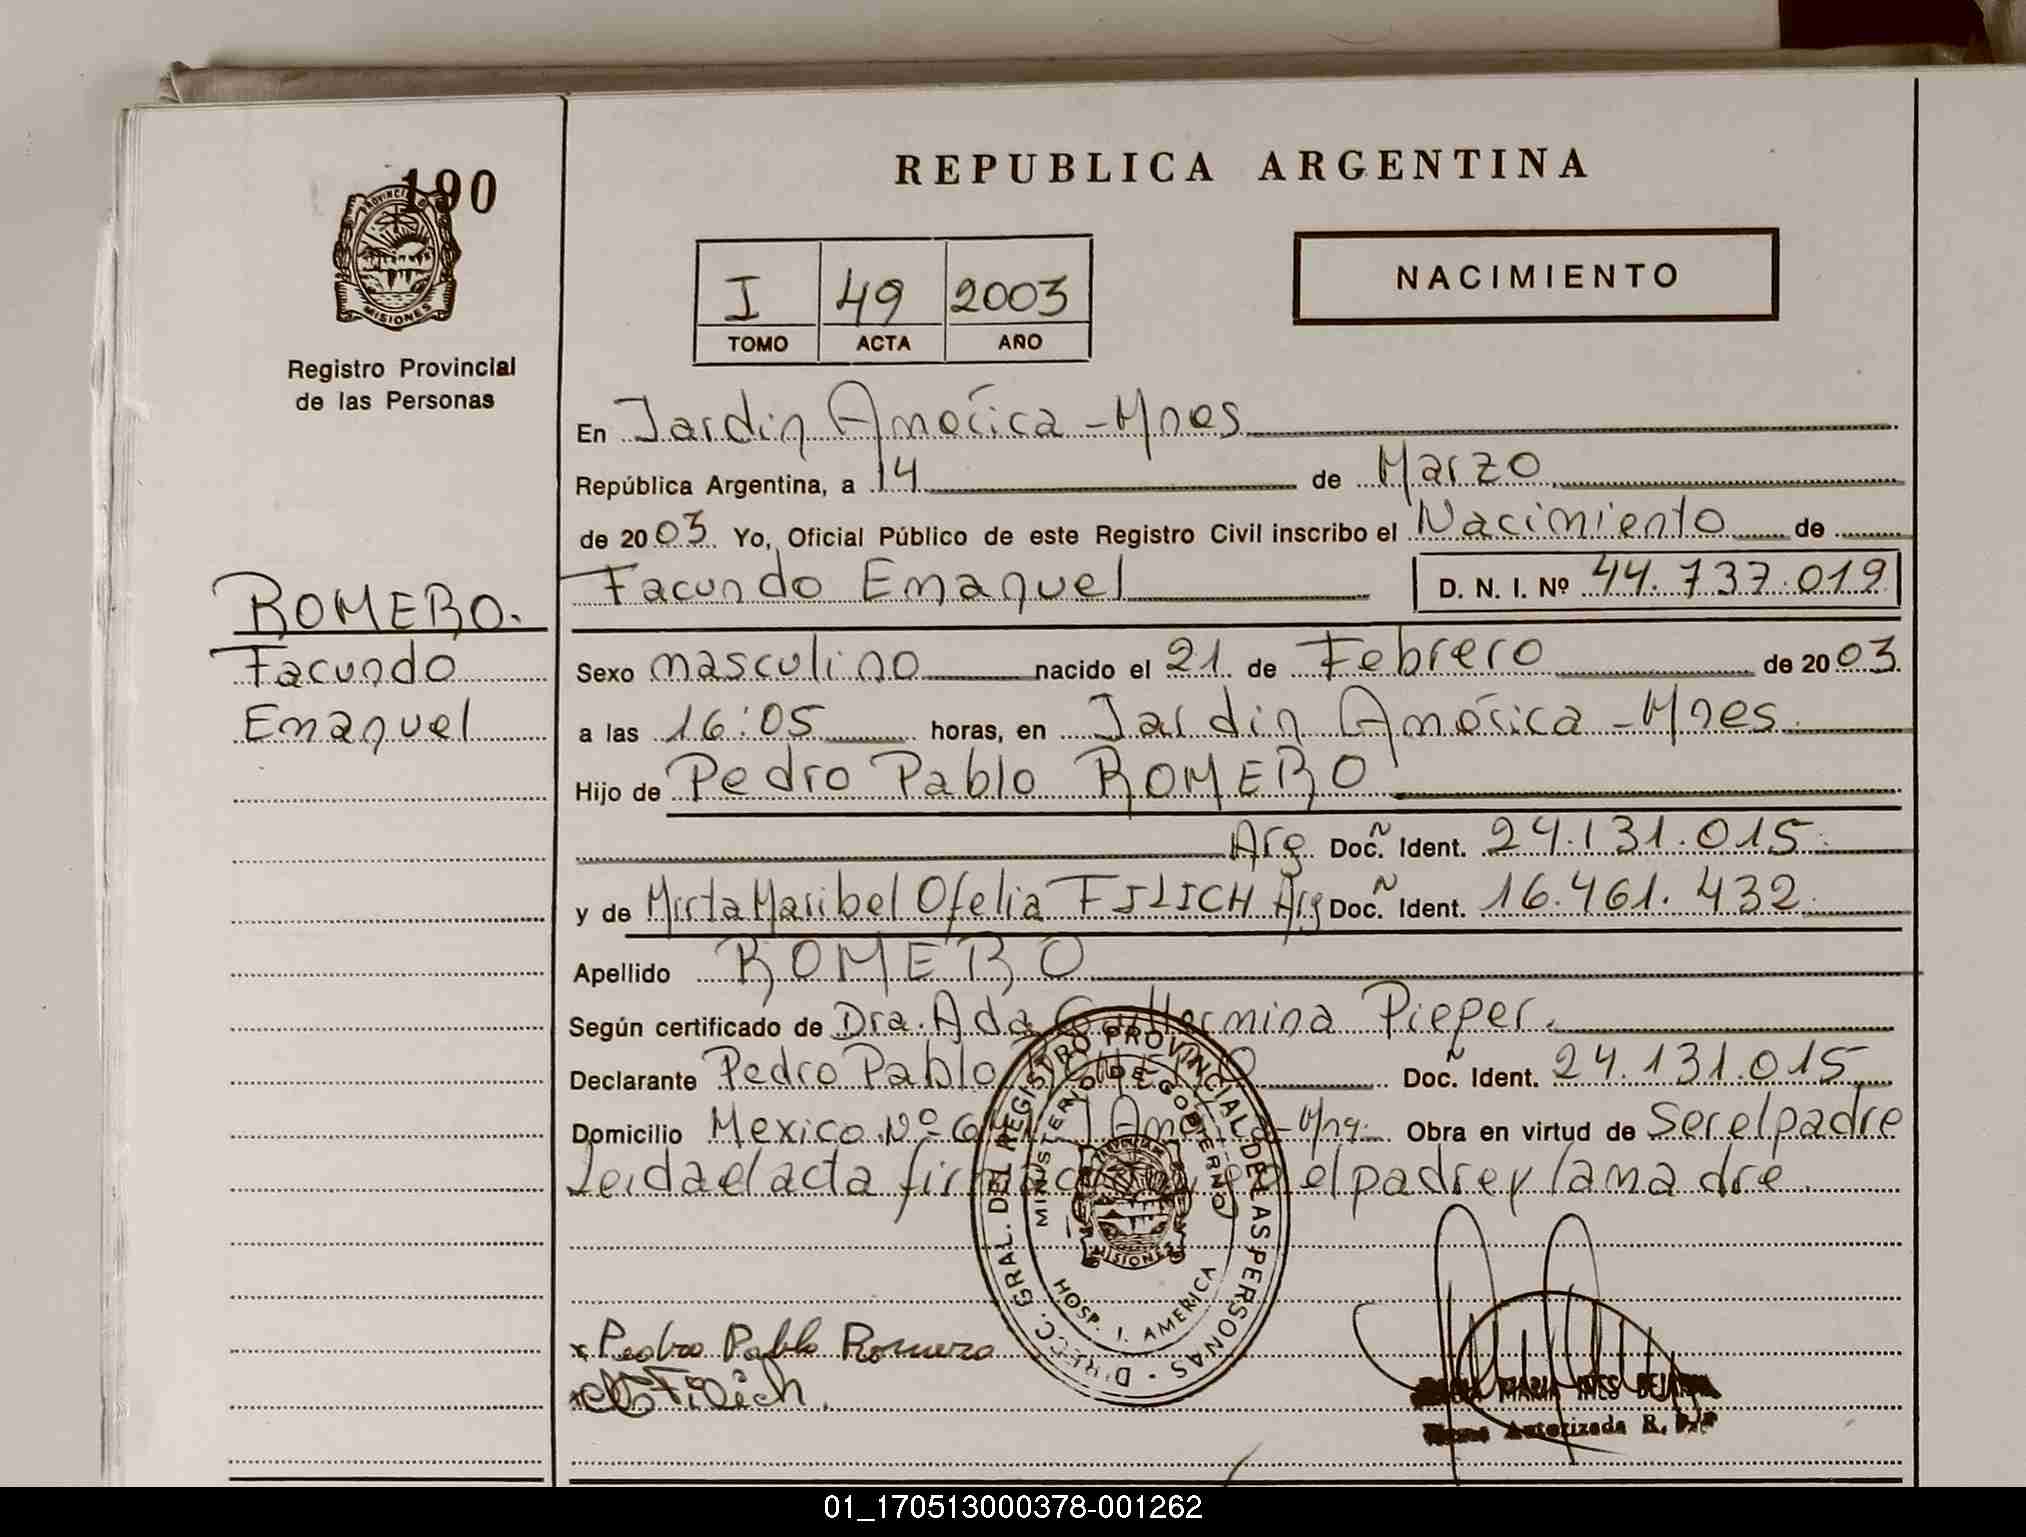 190
PROVINCIA DE
MISIONES
Registro Provincial
de las Personas
ROMERO.
Facundo
Emanuel
REPUBLICA ARGENTINA
I 49 2003
TOMO ACTA AÑO
NACIMIENTO
En Jardin América - Mnes
República Argentina, a 14 de Marzo
de 2003 Yo, Oficial Público de este Registro Civil inscribo el Nacimiento de
Facundo Emanuel D. N. I. Nº 44.737.019
Sexo masculino nacido el 21 de Febrero de 2003.
a las 16:05 horas, en Jardin América - Mnes.
Hijo de Pedro Pablo ROMERO
Arg Doc. Ident. 24.131.015.
y de Mirta Maribel Ofelia FILICH Arg Doc. Ident. 16.461.432.
Apellido ROMERO
Según certificado de Dra. Ada Guillermina Pieper.
Declarante Pedro Pablo ROMERO Doc. Ident. 24.131.015
Domicilio Mexico Nº J. América - Mnes. Obra en virtud de Ser el padre
Leida el acta el padre y la madre.
DIREC. GRAL. DEL REGISTRO PROVINCIAL DE LAS PERSONAS
MINISTERIO DE GOBIERNO
MISIONES
HOSP. J. AMERICA
x Pedro Pablo Romero
x Filich.
MARIA INES
Autorizada R. P. P
01_170513000378-001262